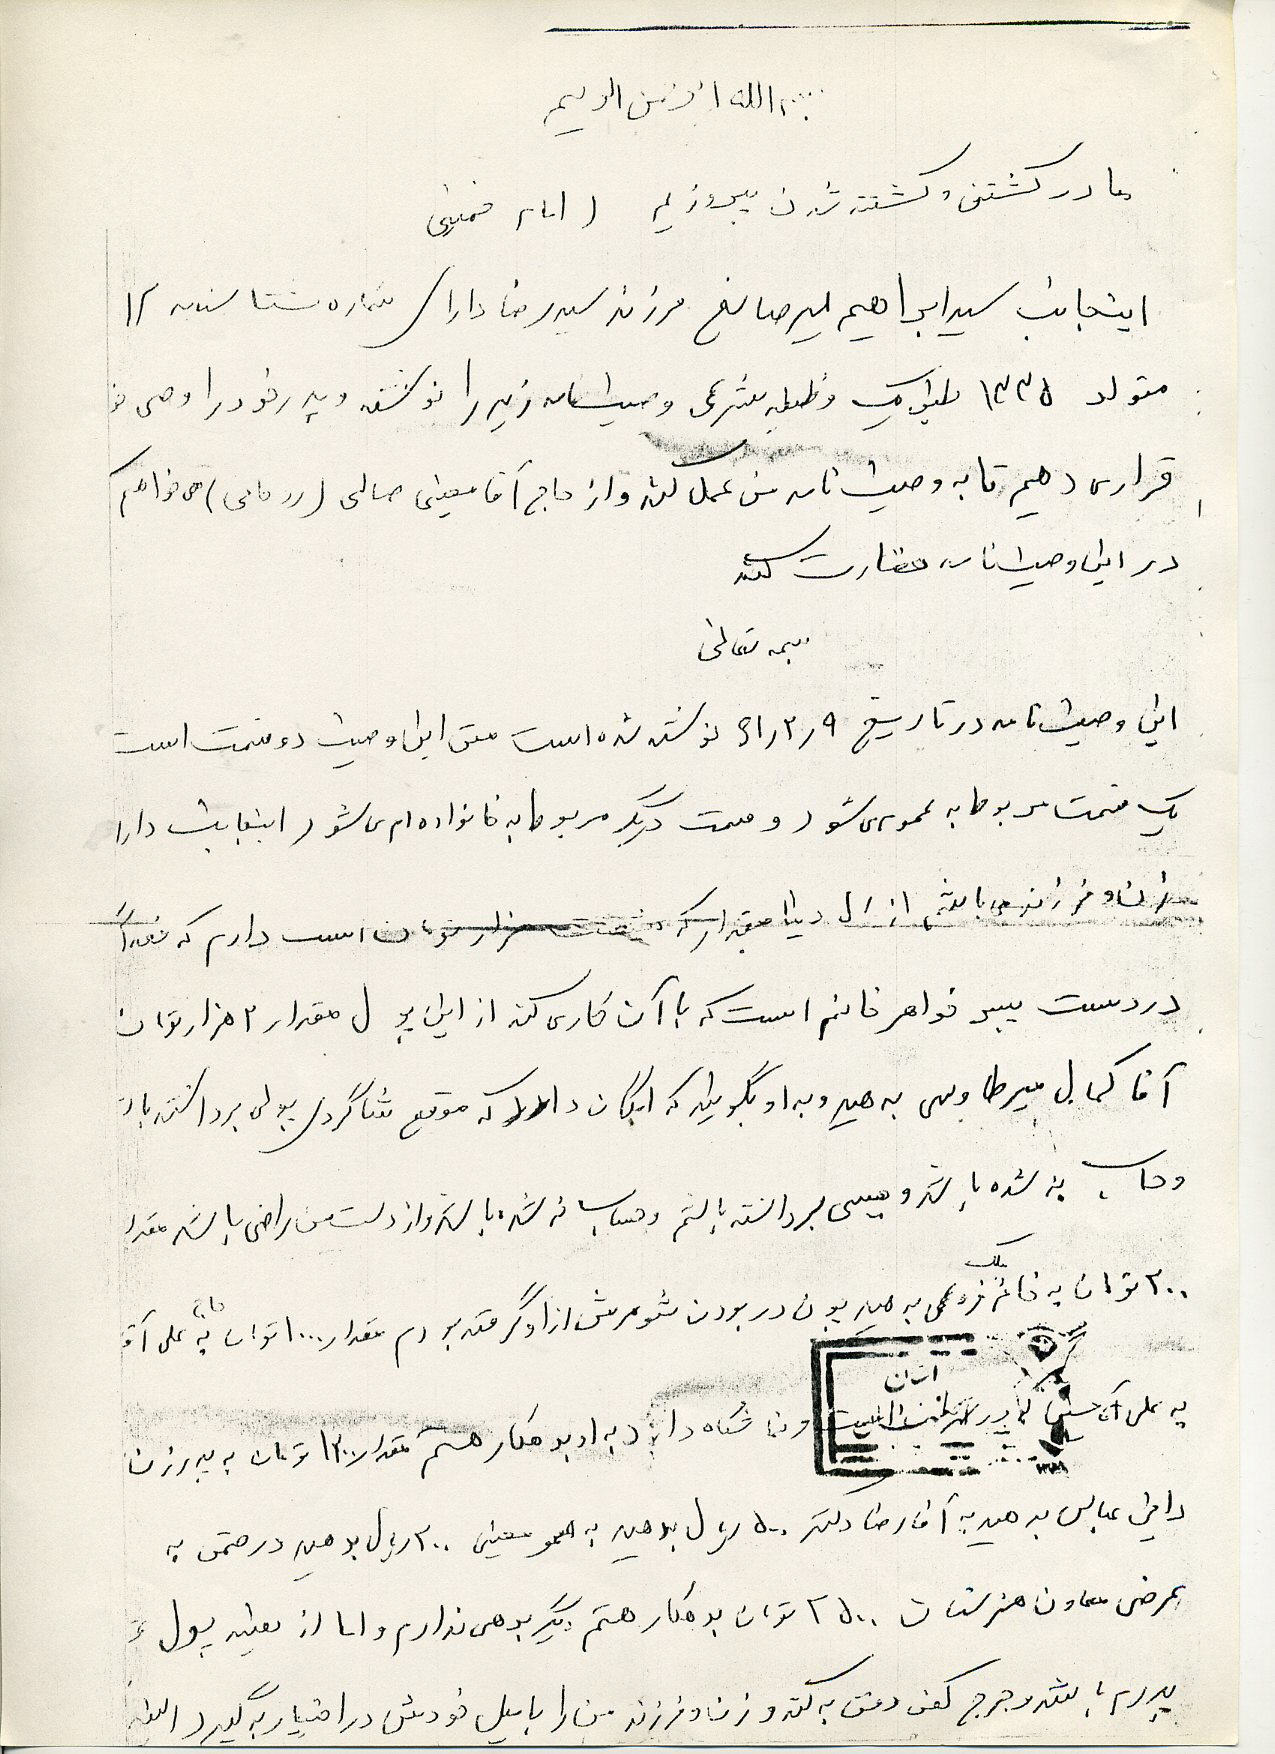 بسم الله الرحمن الرحیم
ما در کشتن و کشته شدن پیروزیم ( امام خمینی
اینجانب سید ابراهیم میرصالح فرزند سید رضا دارای شماره شناسنامه ۱۲
متولد ۱۳۳۵ طبق یک وظیفه شرعی وصیتنامه زیر را نوشته و پدر خود را وصی خو
قرار می دهیم تا به وصیت نامه من عمل کند و از حاج آقا معینی صالحی ( ) می خواهم
در این وصیت نامه نظارت کند
بسمه تعالی
این وصیت نامه در تاریخ ۹ر۲ر۵۹ نوشته شده است متن این وصیت دو قسمت است
یک قسمت مربوط به عموم می شود و قسمت دیگر مربوط به خانواده ام می شود اینجانب دارا
زن و فرزند می باشم از مال دنیا مقدار که هزار تومان است دارم که فعلاً
در دست خواهر خانم است که با آن کاری کند از این پول مقدار ۲ هزار تومان
آقا کمال میرطاوسی به هید و به او بگویید که امکان دارد که موقع شاگردی پولی برداشته باش
و حساب نه شده باشد و جنسی برداشته باشم و حساب نه شده باشد و از دست من راضی باشد مقدار
۲۰۰ تومان به خانم ملک به هید چون در بودن شوهرش از او گرفته بودم مقدار ۱۰۰۰ تومان به حاج علی آقا
به علی آقا حسینی که پدر است و نمایشگاه دارد به او بدهکار هستم مقدار ۱۲۰۰ تومان به پیرزن
دایی عباس بدهید به آقا رضا دکتر ۵۰۰ ریال بدهید به عمو معینی ۲۰۰ ریال بدهید در ضمن به
معاون هنرستان ۲۵۰۰ تومان بدهکار هستم دیگر بدهی ندارم و اما از بقیه پول
پدرم باشد و خرج کفن دفن به کند و زن و فرزند من را با میل خودش در اختیار به گیرد البته